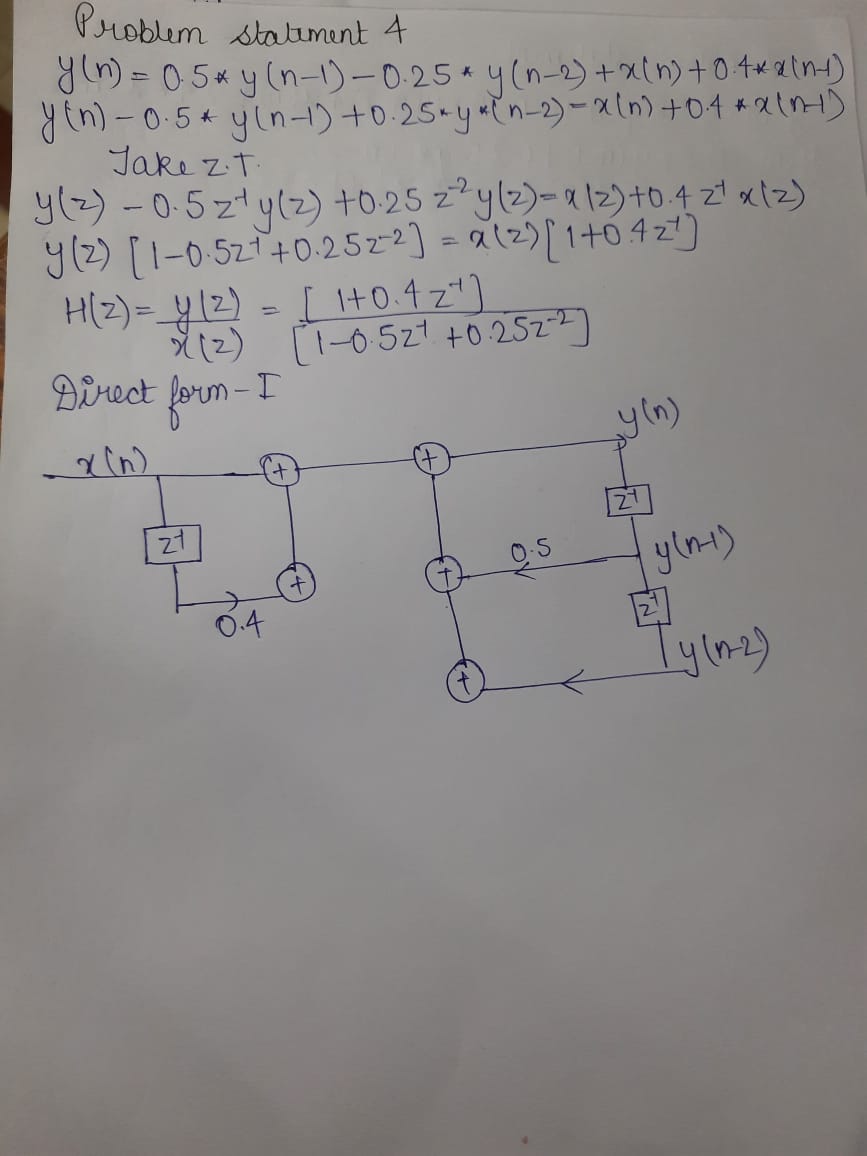 Problem statement 4
y(n) = 0.5* y(n-1) - 0.25 * y(n-2) + x(n) + 0.4* x(n-1)
y(n) - 0.5 * y(n-1) + 0.25*y*(n-2) = x(n) + 0.4 * x(n-1)
Take Z.T.
y(z) - 0.5 z⁻¹ y(z) + 0.25 z⁻² y(z) = x(z) + 0.4 z⁻¹ x(z)
y(z) [1-0.5z⁻¹ + 0.25z⁻²] = x(z) [1+0.4z⁻¹]
H(z) = y(z) / x(z) = [1+0.4z⁻¹] / [1-0.5z⁻¹ + 0.25z⁻²]
Direct form - I
y(n)
x(n) + +
z⁻¹
z⁻¹ 0.5 y(n-1)
+ +
0.4 z⁻¹
y(n-2)
+